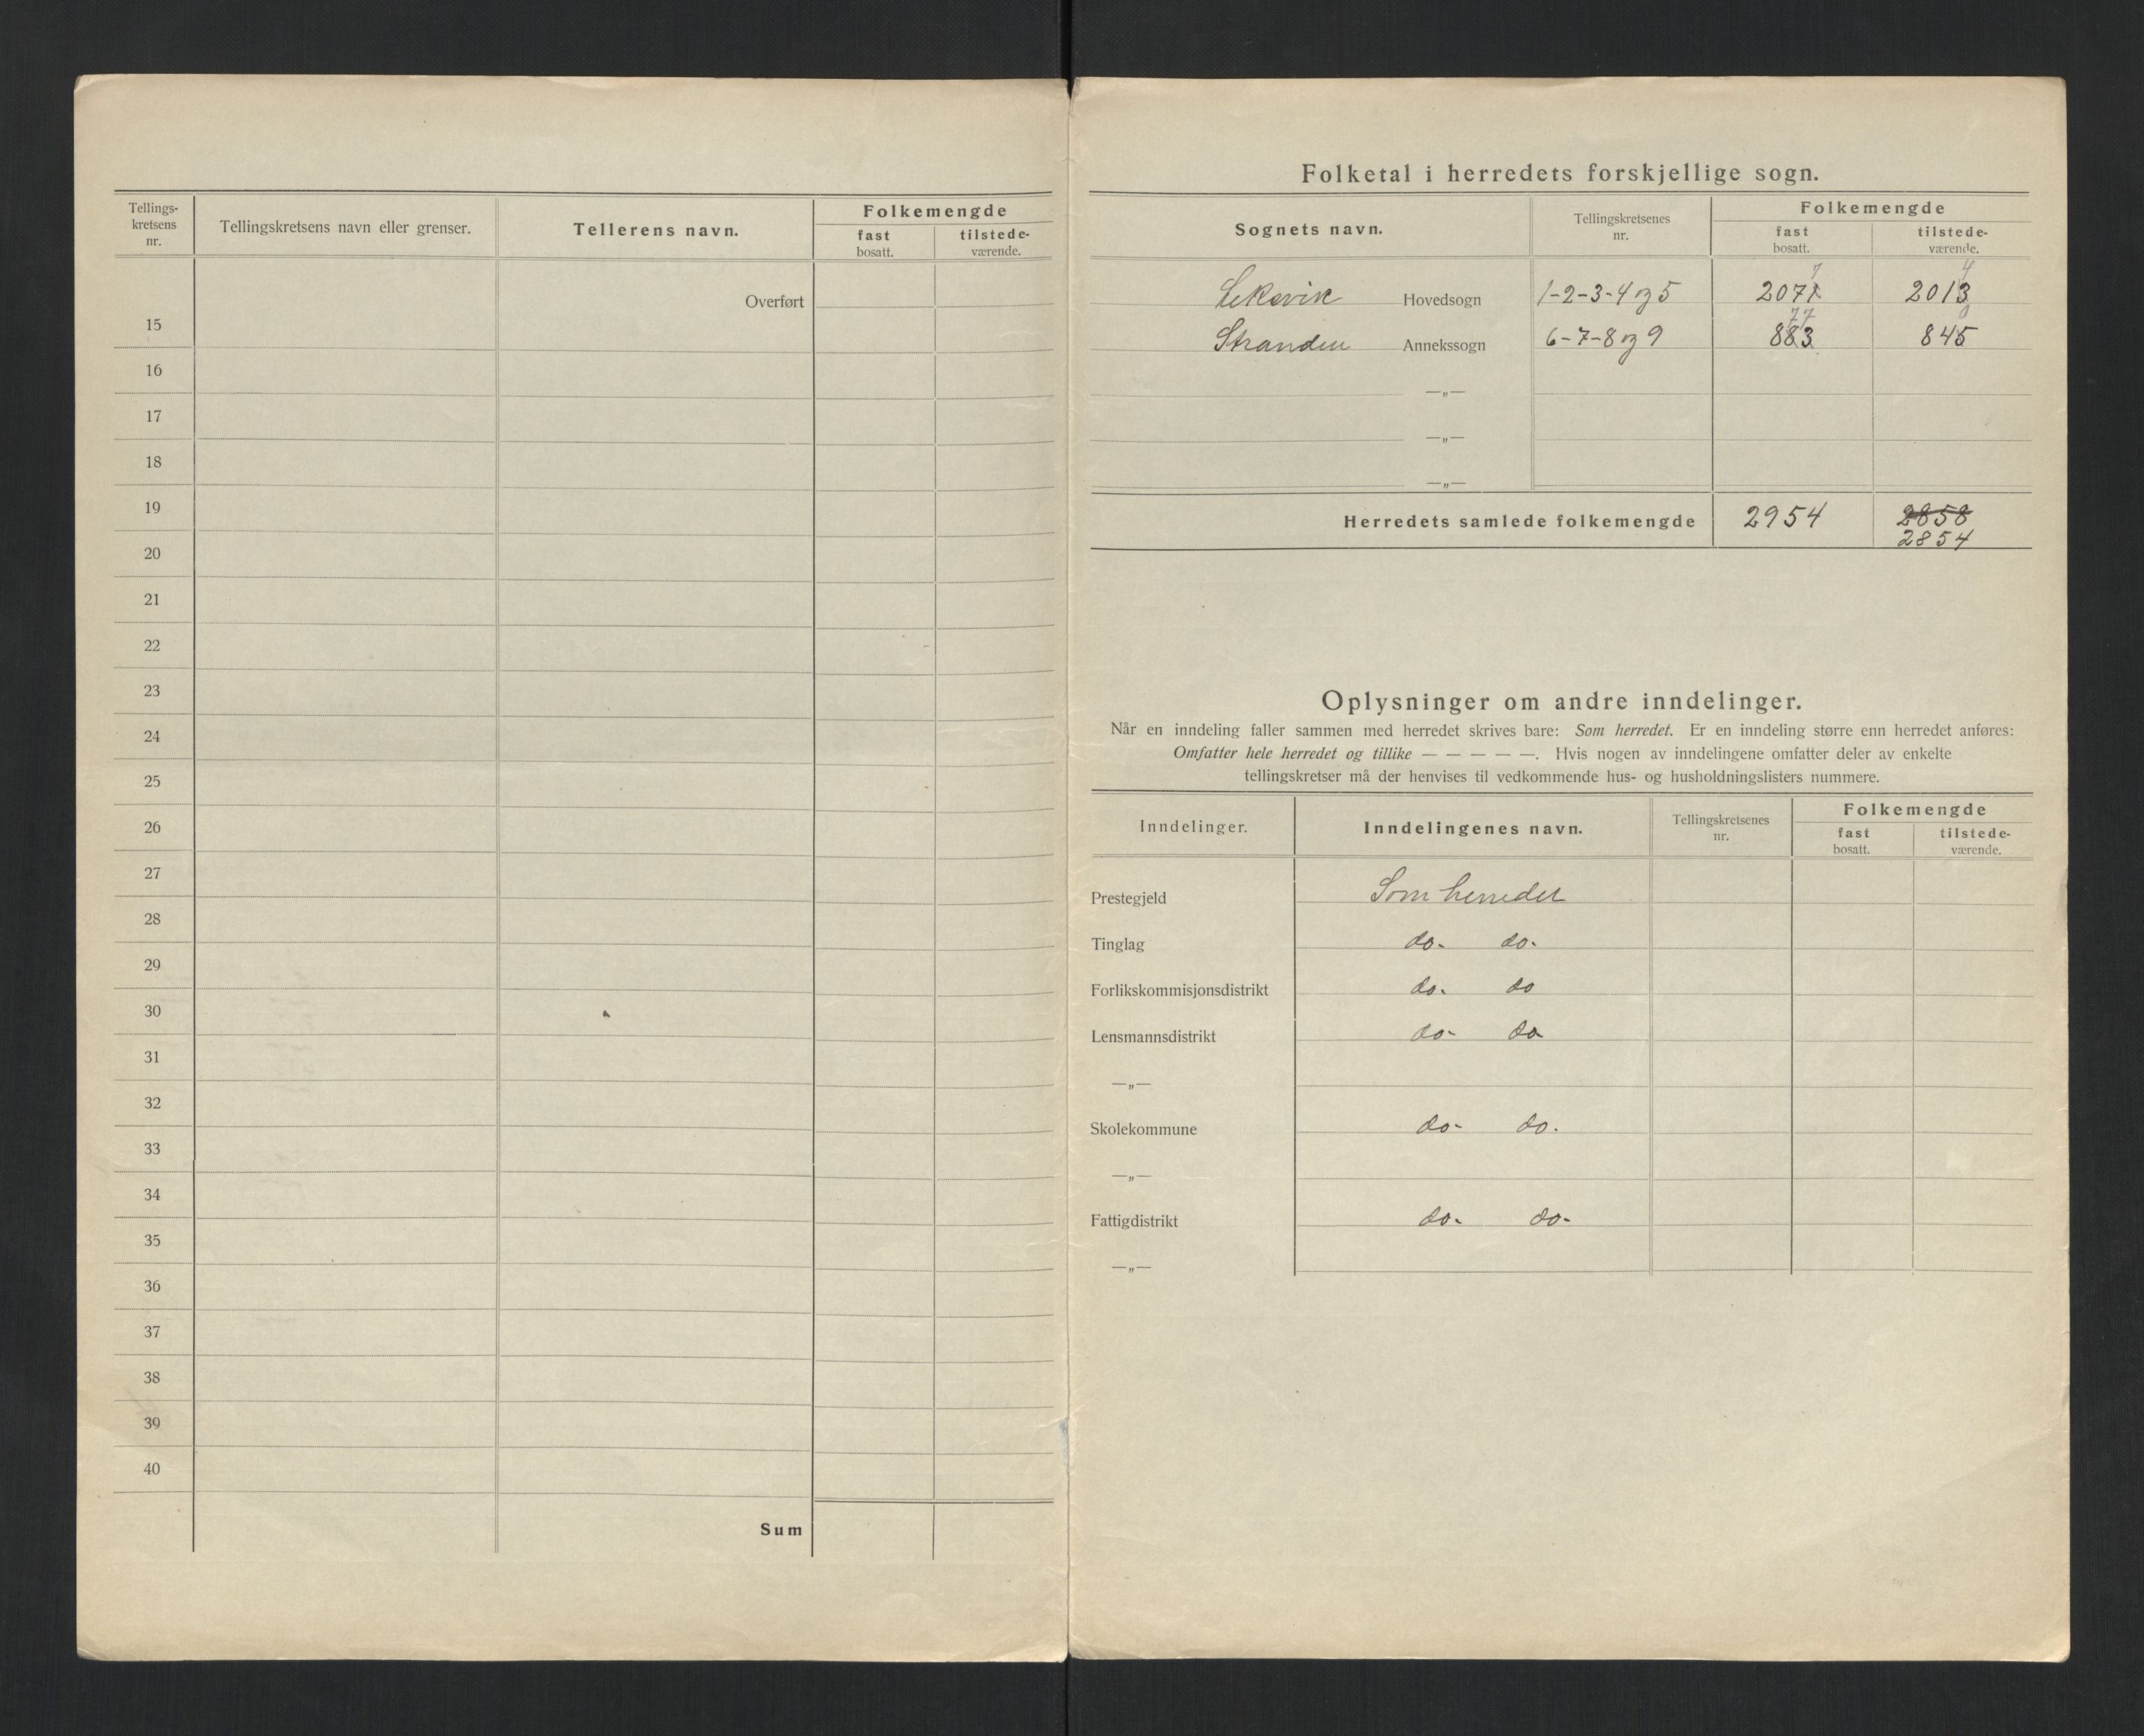 Tellings-
kretsens
nr.
Tellingskretsens navn eller grenser.
Tellerens navn.
Folkemengde
fast
bosatt.
tilstede-
værende.
Overført
15
16
17
18
19
20
21
22
23
24
25
26
27
28
29
30
31
32
33
34
35
36
37
38
39
40
Sum
Folketal i herredets forskjellige sogn.
Sognets navn.
Tellingskretsenes
nr.
Folkemengde
fast
bosatt.
tilstede-
værende.
7 4
Leksvik Hovedsogn 1-2-3-4 og 5 2071 2013
77 0
Stranden Annekssogn 6-7-8 og 9 883 845
—„—
—„—
—„—
Herredets samlede folkemengde 2954 2858
2854
Oplysninger om andre inndelinger.
Når en inndeling faller sammen med herredet skrives bare: Som herredet. Er en inndeling større enn herredet anføres:
Omfatter hele herredet og tillike — — — — —. Hvis nogen av inndelingene omfatter deler av enkelte
tellingskretser må der henvises til vedkommende hus- og husholdningslisters nummere.
Inndelinger.
Inndelingenes navn.
Tellingskretsenes
nr.
Folkemengde
fast
bosatt.
tilstede-
værende.
Prestegjeld Som herredet
Tinglag do. do.
Forlikskommisjonsdistrikt do. do
Lensmannsdistrikt do- do
—„—
Skolekommune do- do.
—„—
Fattigdistrikt do. do-
—„—